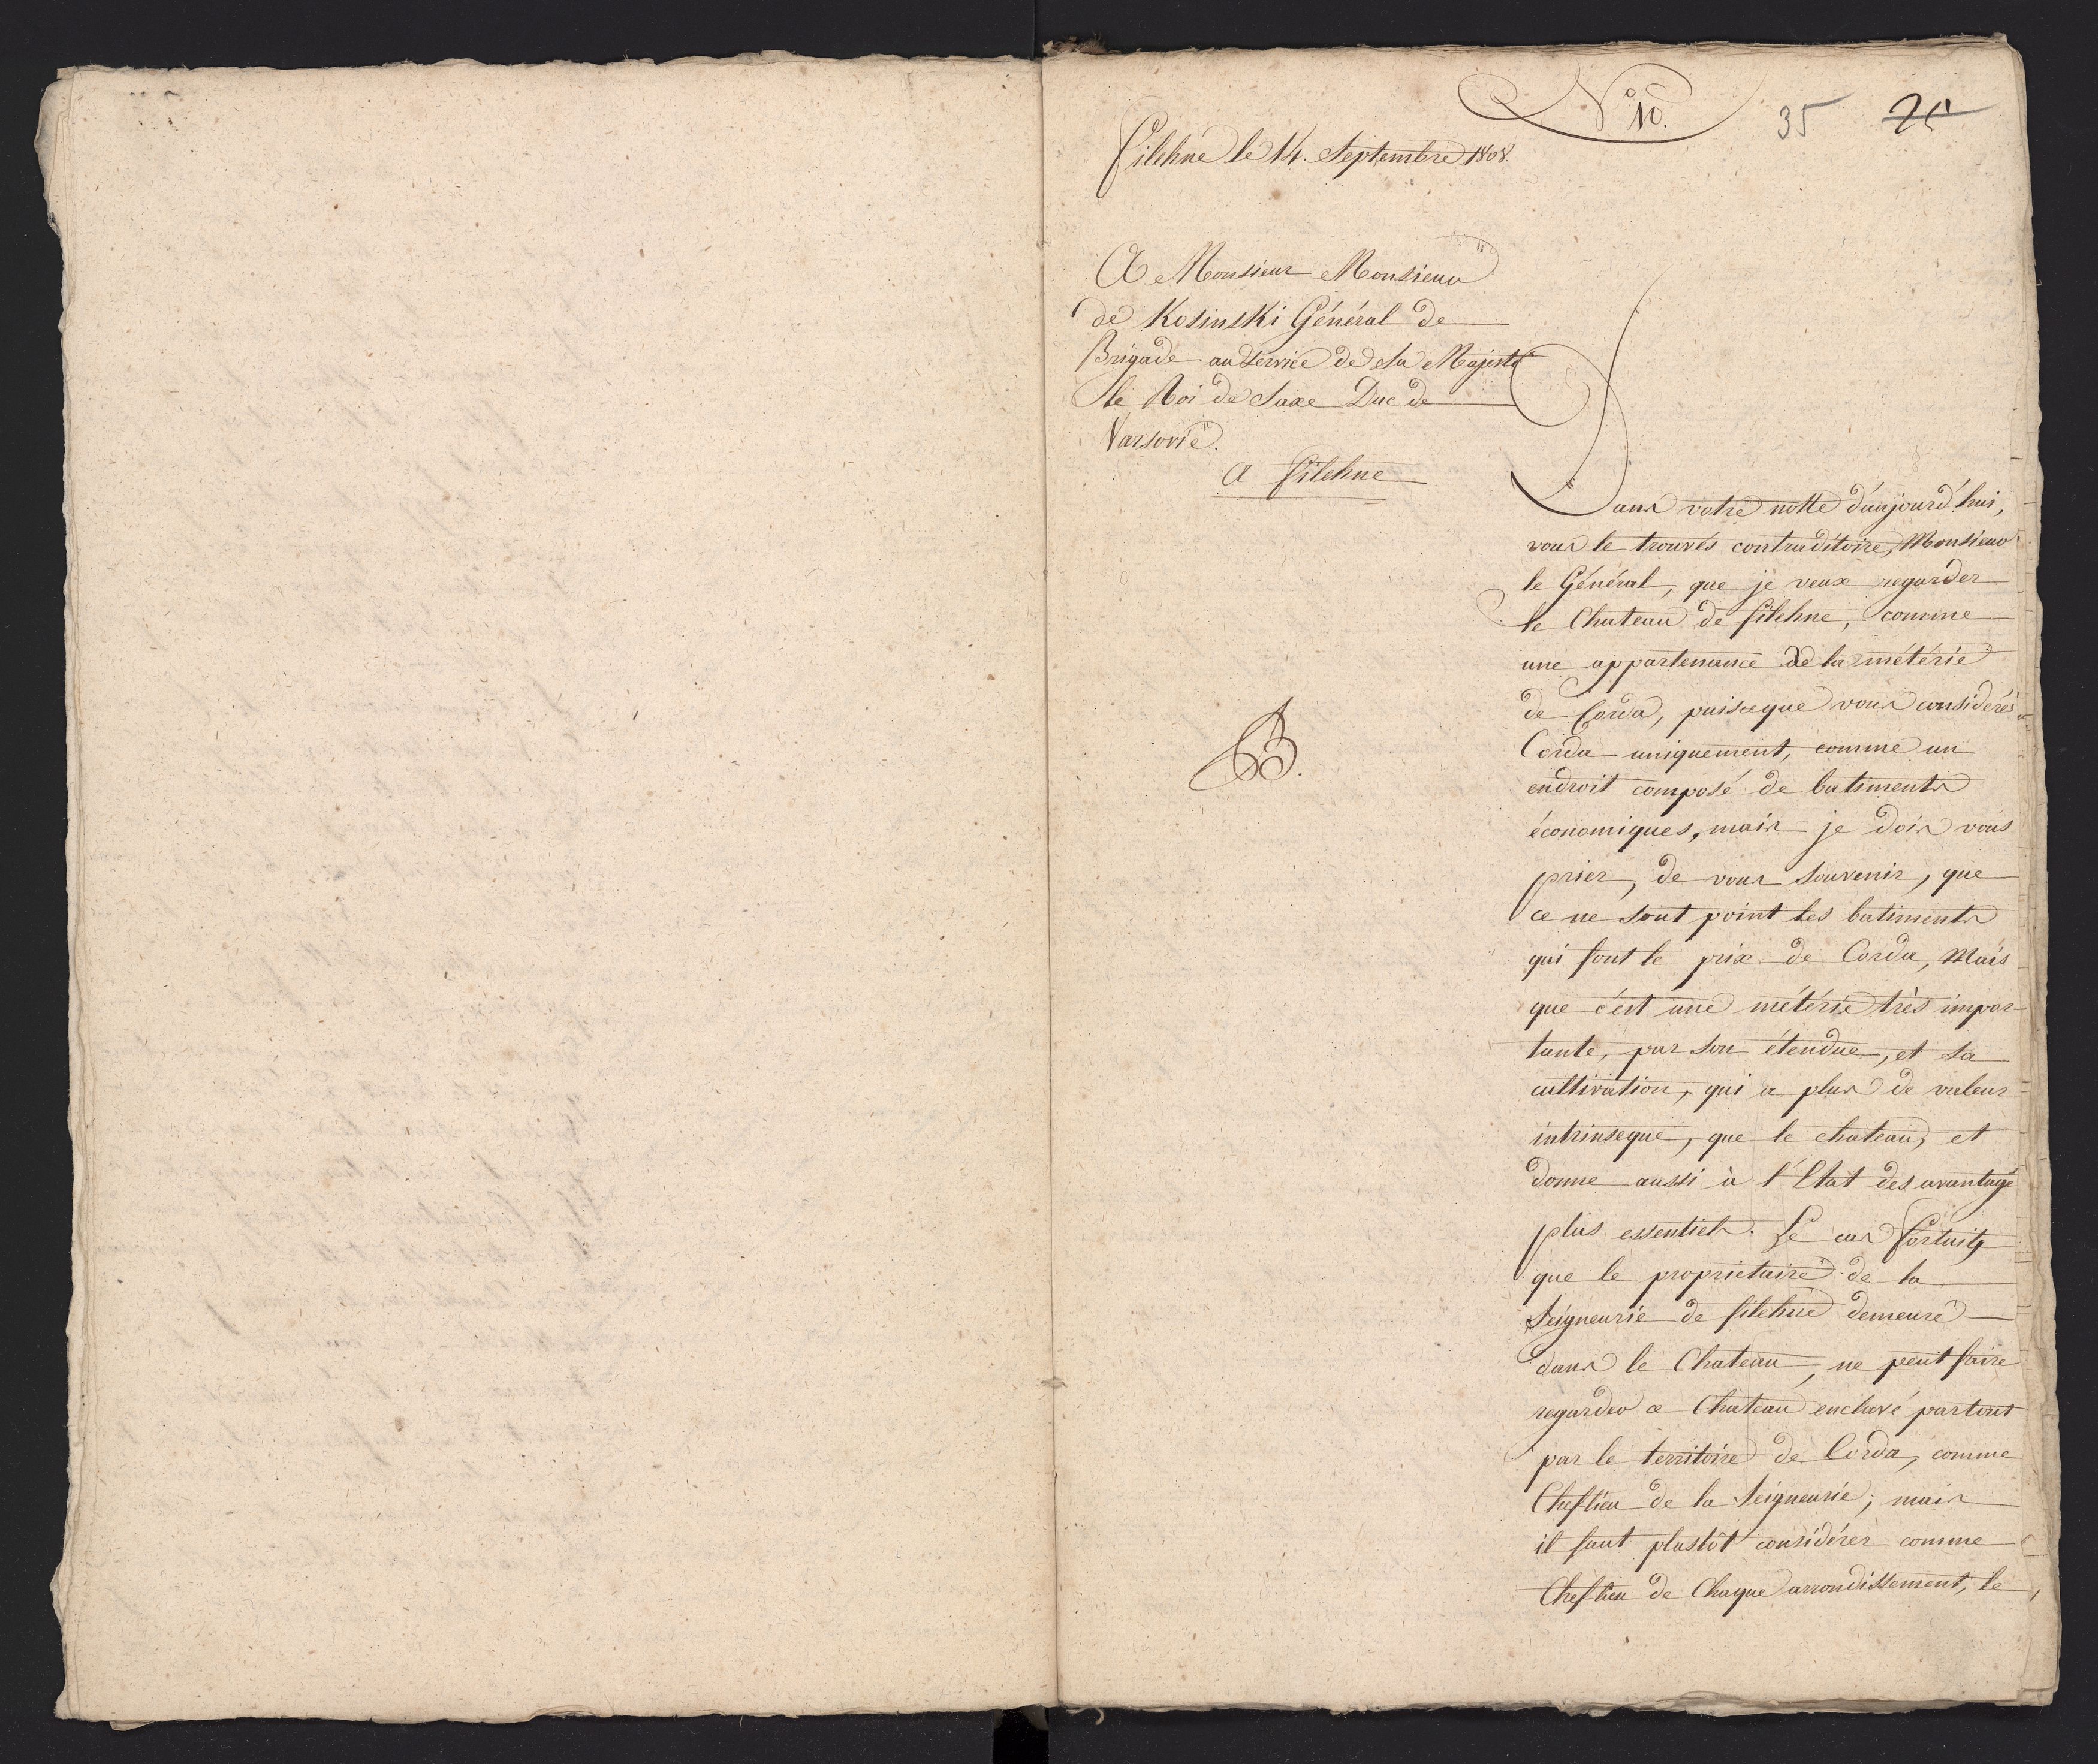 No 10.
35
Filehne le 14. Septembre 1808.
A Monsieur Monsieur
de Kosinski Général de
Brigade au Service de Sa Majesté
le Roi de Saxe Duc de
Varsovie.
A Filehne
B.
Dans votre notte d'aujourd'hui,
vous le trouvés contraditoire, Monsieur
le Général, que je veux regarder
le Chateau de filehne, comme
une appartenance de la métérie
de Corda, puisceque vous considerés
Corda uniquement, comme un
endroit composé de batiments
économiques, mais je dois vous
prier, de vous souvenir, que
ce ne sont point les batiments
qui font le prix de Corda, Mais
que c'est une météríe très impor-
tante, par son étendue, et sa
cultivation, qui a plus de valeur
intrinseque, que le chateau, et
donne aussi à l'Etat des avantage
plus essentiels. Le cas fortuit,
que le proprietaire de la
Seigneurie de filehne demeure
dans le Chateau, ne peut faire
regarder ce Chateau enclavé partout
par le territoire de Corda, comme
Cheflieu de la Seigneurie; mais
il faut plustôt considérer comme
Cheflieu de Chaque arrondissement, le